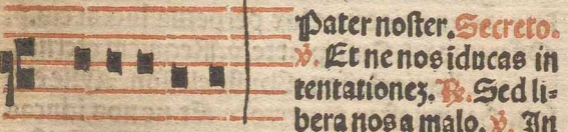 Pater noſter. Secreto.
℣. Et ne nos īducas in
tentationeꝫ. ℟. Sed li⸗
bera nos a malo. ℣. In